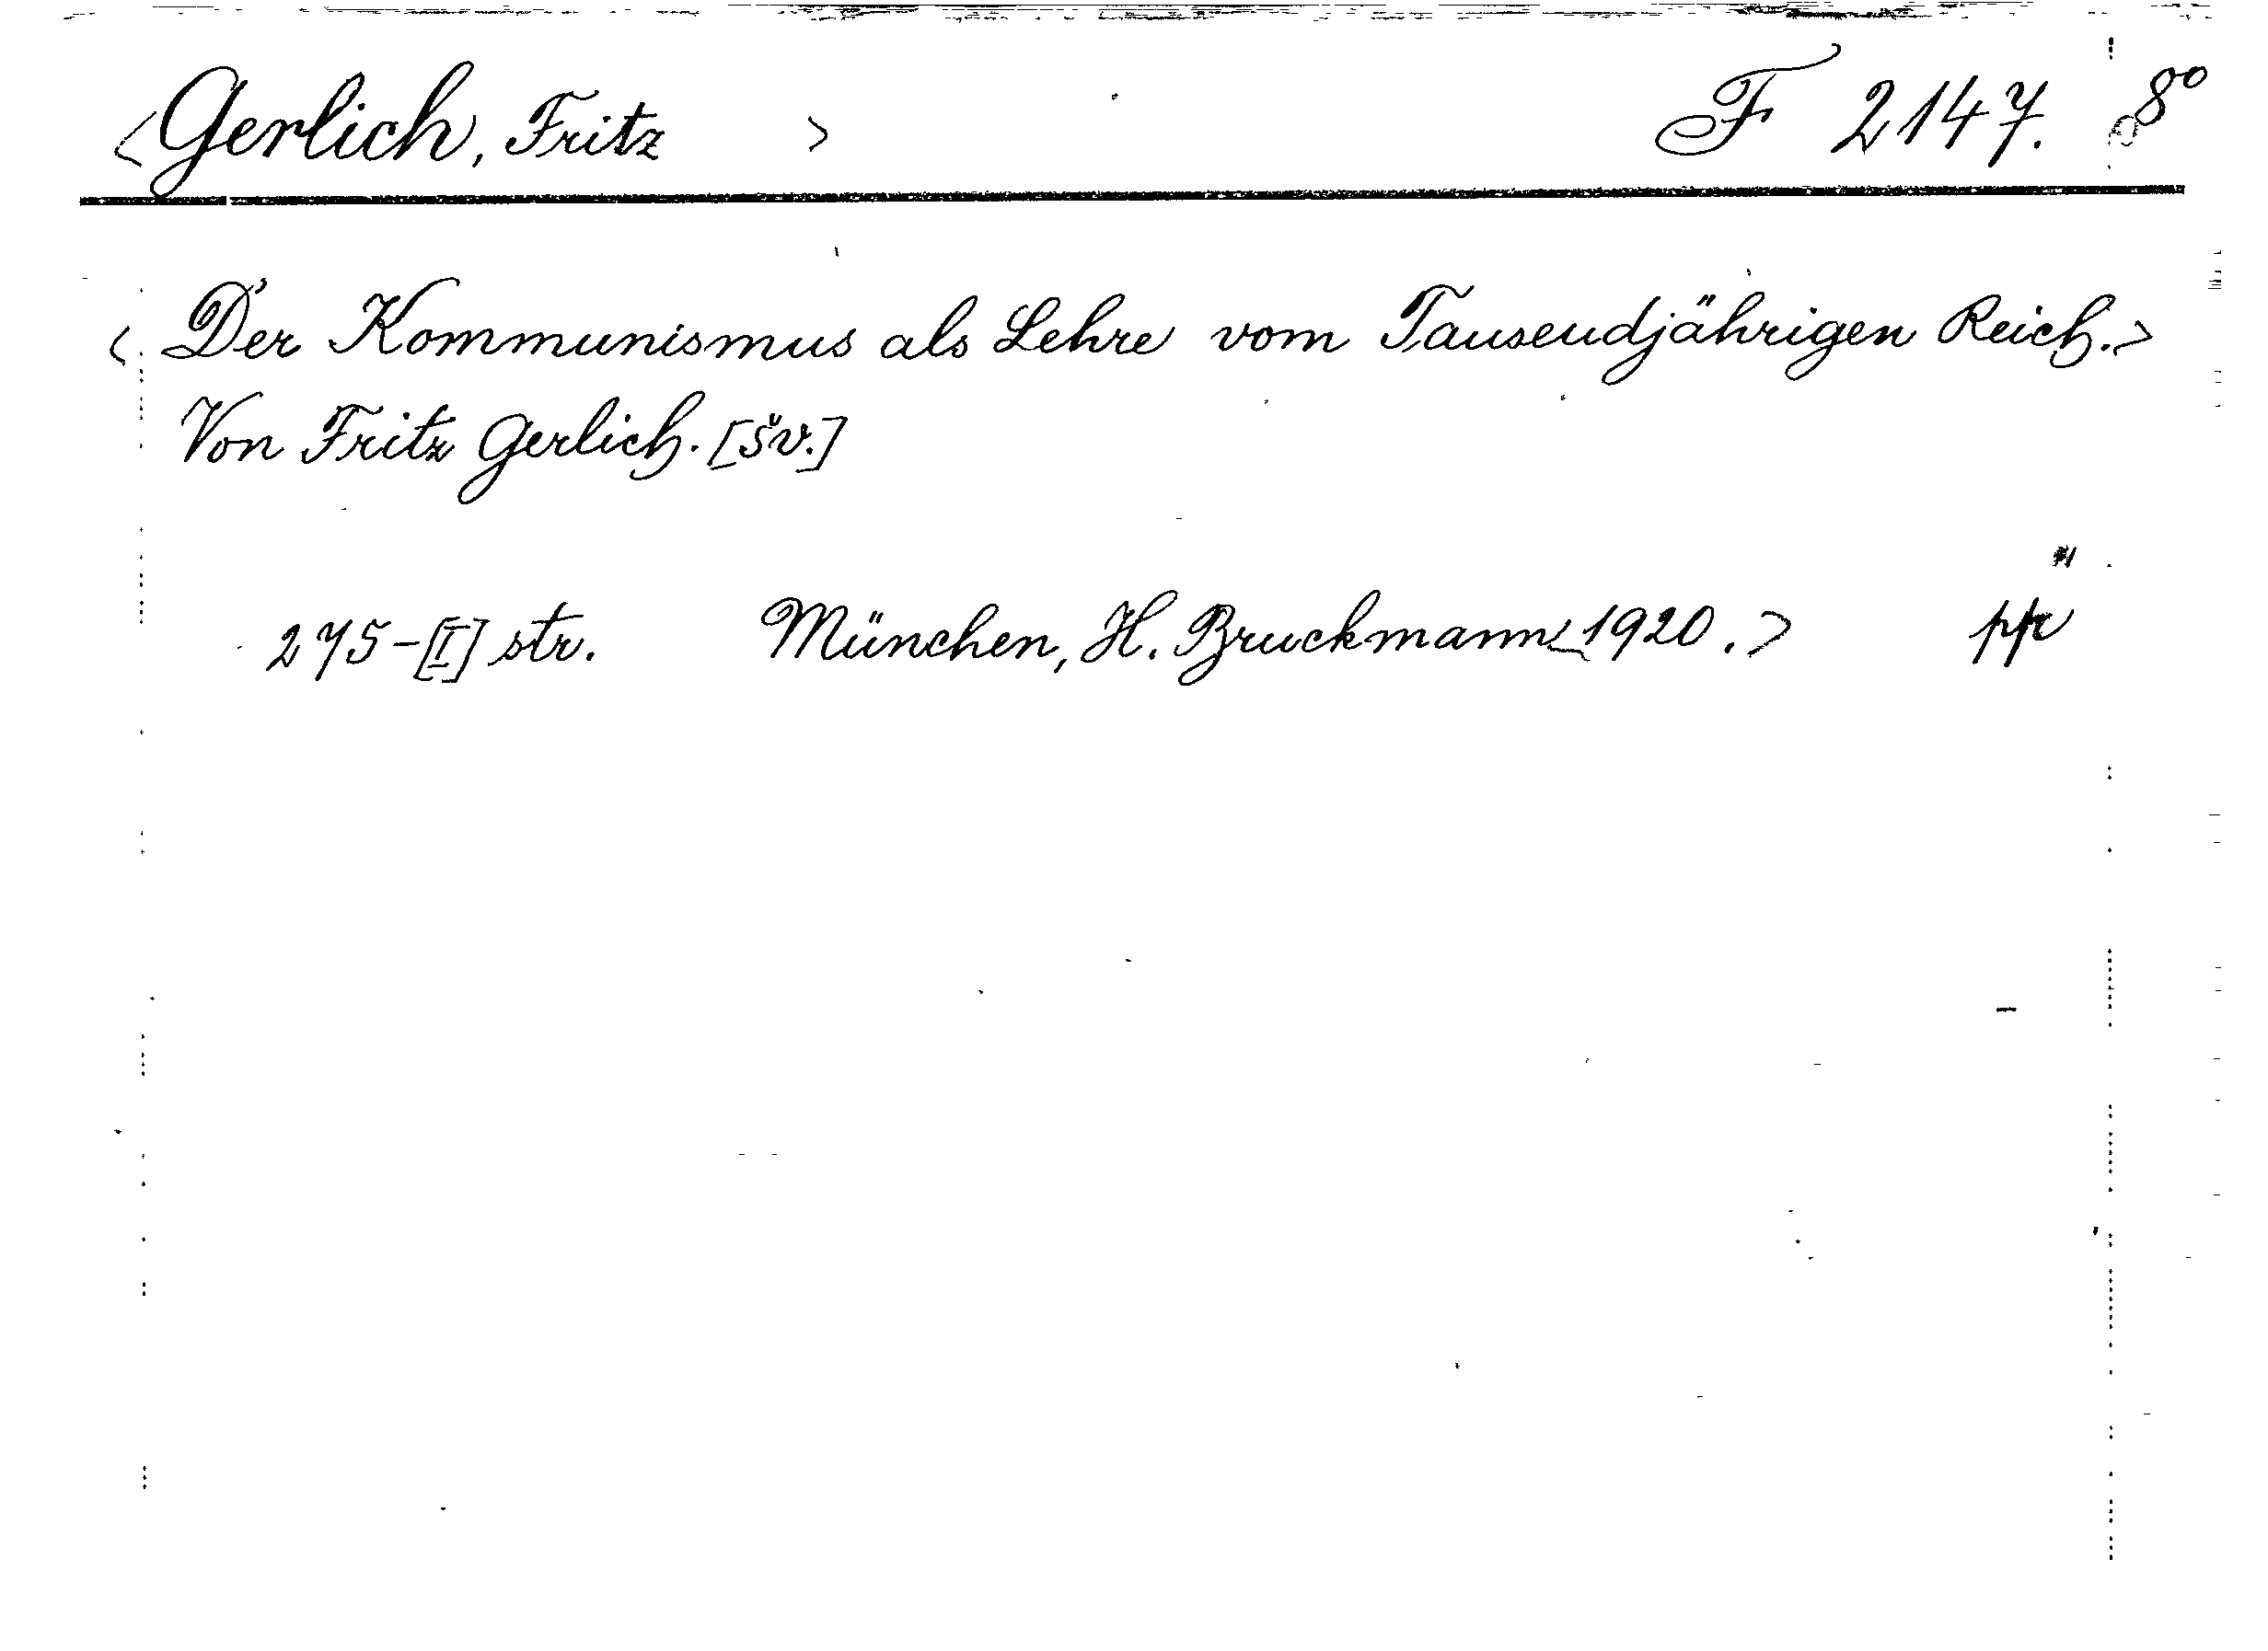 <Gerlich, Fritz > F 2147. 8°
<Der Kommunismus als Lehre vom Tausendjährigen Reich.>
Von Fritz Gerlich. [šv.]
275-[I] str. München, H. Bruckmann 1920.>